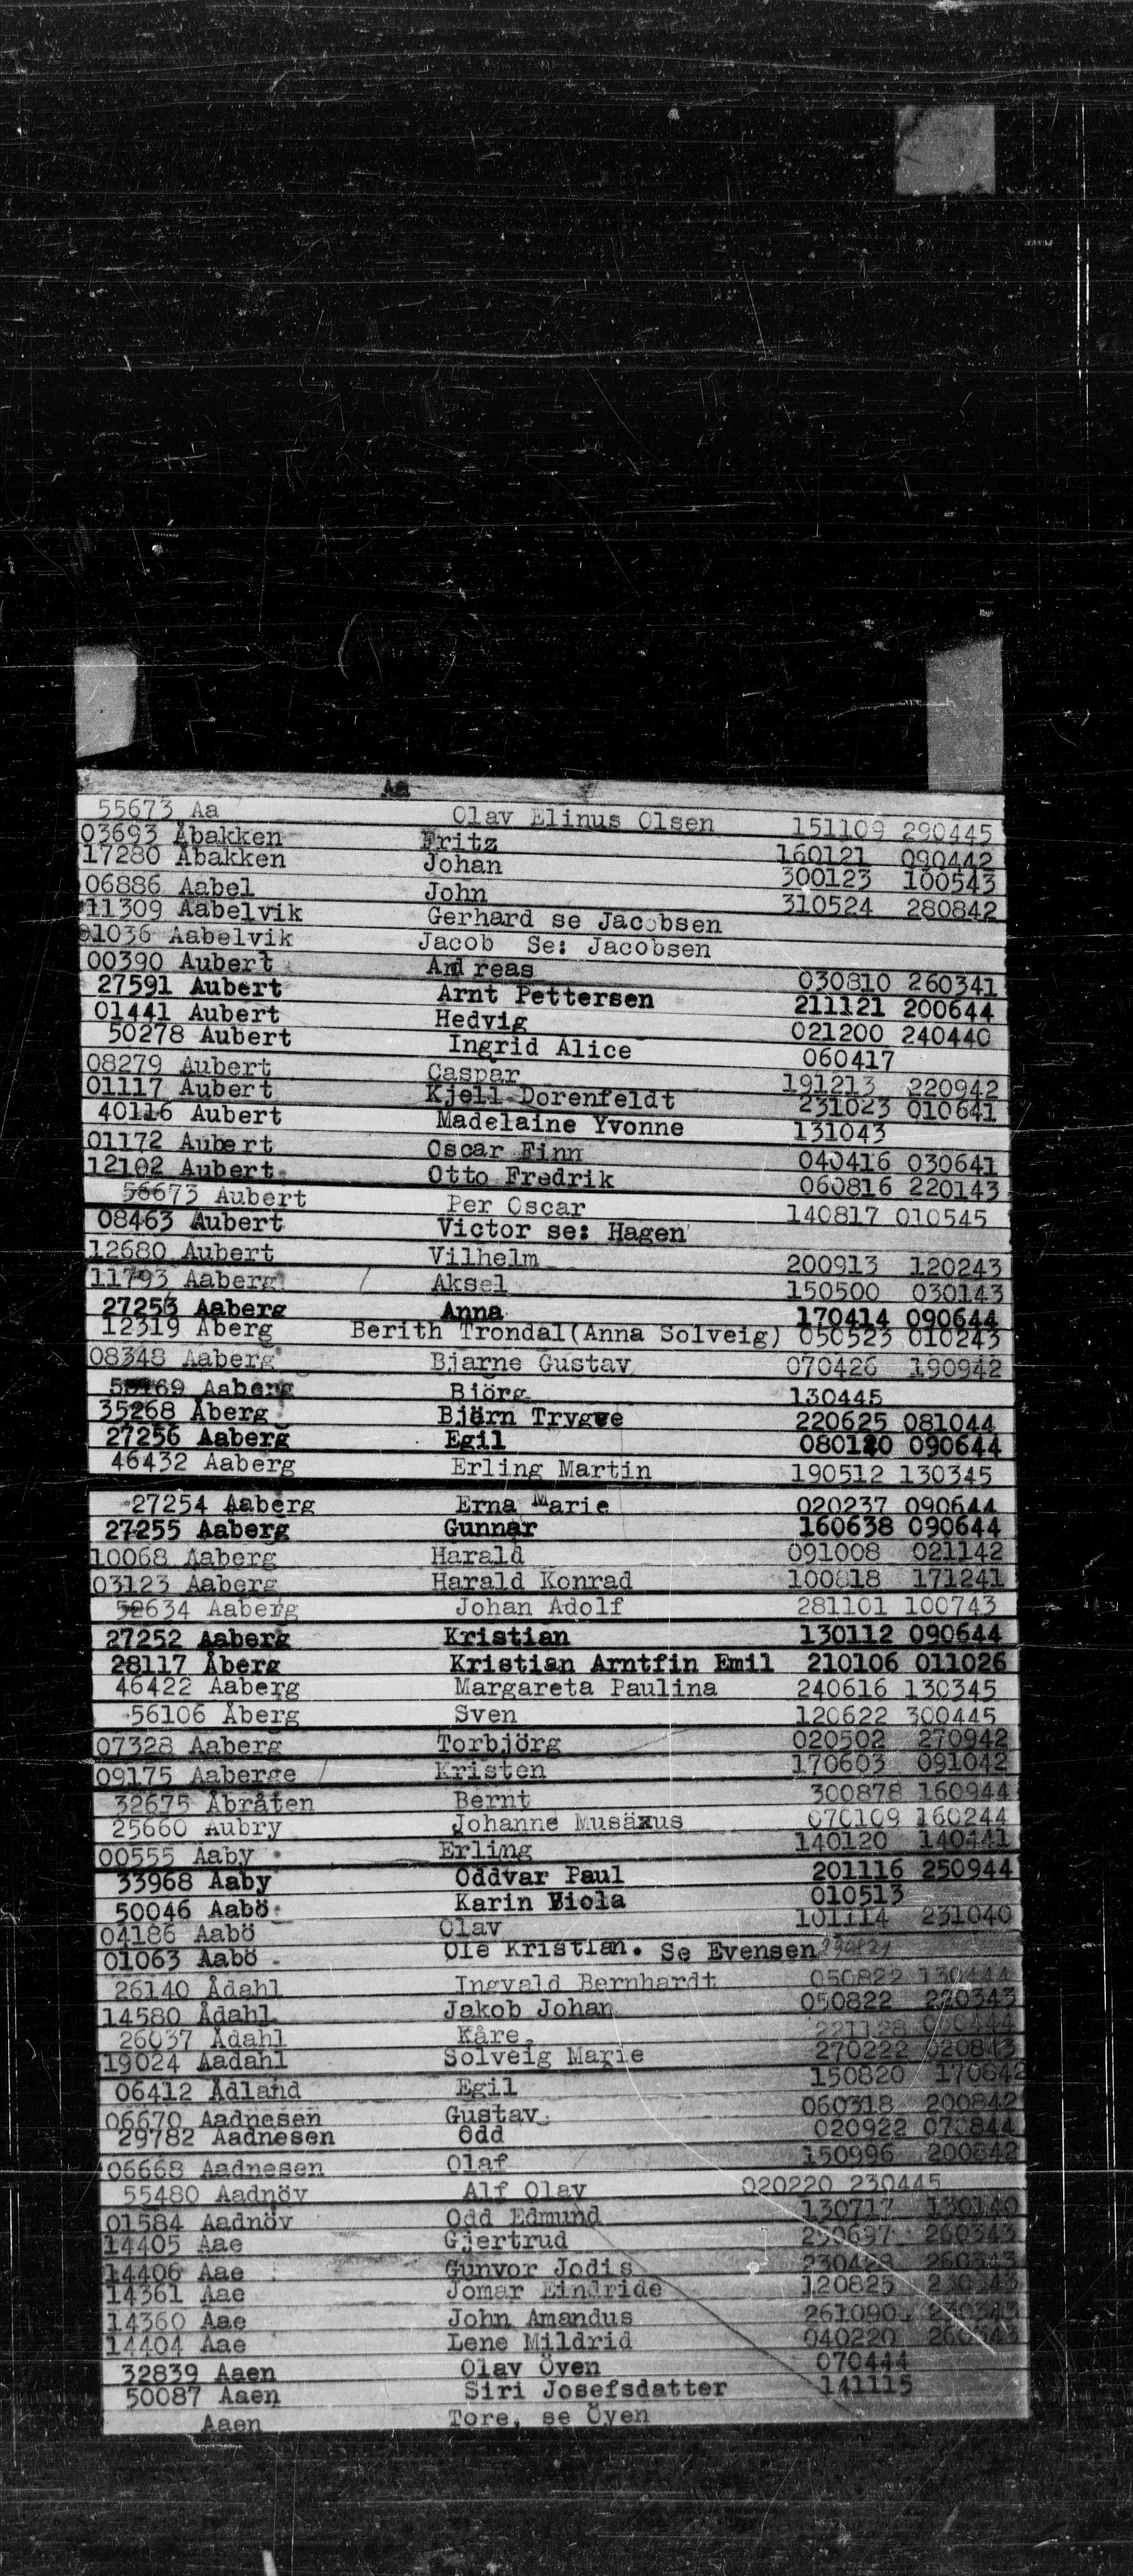 Aa
55673 Aa Olav Elinus Olsen 151109 290445
03693 Åbakken Fritz 160121 090442
17280 Åbakken Johan 300123 100543
06886 Aabel John 310524 280842
11309 Aabelvik Gerhard se Jacobsen
01036 Aabelvik Jacob Se: Jacobsen
00390 Aubert Andreas 030810 260341
27591 Aubert Arnt Pettersen 211121 200644
01441 Aubert Hedvig 021200 240440
50278 Aubert Ingrid Alice 060417
08279 Aubert Caspar 191213 220942
01117 Aubert Kjell Dorenfeldt 231023 010641
40116 Aubert Madelaine Yvonne 131043
01172 Aubert Oscar Finn 040416 030641
12102 Aubert Otto Fredrik 060816 220143
56673 Aubert Per Oscar 140817 010545
08463 Aubert Victor se: Hagen
12680 Aubert Vilhelm 200913 120243
11793 Aaberg Aksel 150500 030143
27253 Aaberg Anna 170414 090644
12319 Åberg Berith Trondal(Anna Solveig) 050523 010243
08348 Aaberg Bjarne Gustav 070426 190942
Aaberg Björg 130445
35268 Åberg Björn Trygve 220625 081044
27256 Aaberg Egil 080120 090644
46432 Aaberg Erling Martin 190512 130345
27254 Aaberg Erna Marie 020237 090644
27255 Aaberg Gunnar 160638 090644
10068 Aaberg Harald 091008 021142
03123 Aaberg Harald Konrad 100818 171241
Aaberg Johan Adolf 281101 100743
27252 Aaberg Kristian 130112 090644
28117 Åberg Kristian Arntfin Emil 210106 011026
46422 Aaberg Margareta Paulina 240616 130345
56106 Åberg Sven 120622 300445
07328 Aaberg Torbjörg 020502 270942
09175 Aaberge Kristen 170603 091042
32675 Åbråten Bernt 300878 160944
25660 Aubry Johanne Musäxus 070109 160244
00555 Aaby Erling 140120 140441
33968 Aaby Oddvar Paul 201116 250944
50046 Aabö Karin Viola 010513
04186 Aabö Olav 101114 231040
01063 Aabö Ole Kristian. Se Evensen
26140 Ådahl Ingvald Bernhardt 050822 130444
14580 Ådahl Jakob Johan 050822 220343
26037 Ådahl Kåre
19024 Aadahl Solveig Marie 270222 020843
06412 Ådland Egil 150820 170842
06670 Aadnesen Gustav 060318 200842
29782 Aadnesen Odd 020922 070844
06668 Aadnesen Olaf 150996 200842
55480 Aadnöv Alf Olav 020220 230445
01584 Aadnöv Odd Edmund 130717 130140
14405 Aae Gjertrud 250697 260343
14406 Aae Gunvor Jodis 260343
14361 Aae Jomar Eindride 120825 230343
14360 Aae John Amandus 230343
14404 Aae Lene Mildrid 040220 260343
32839 Aaen Olav Öven 070444
50087 Aaen Siri Josefsdatter 141115
Aaen Tore, se Öyen